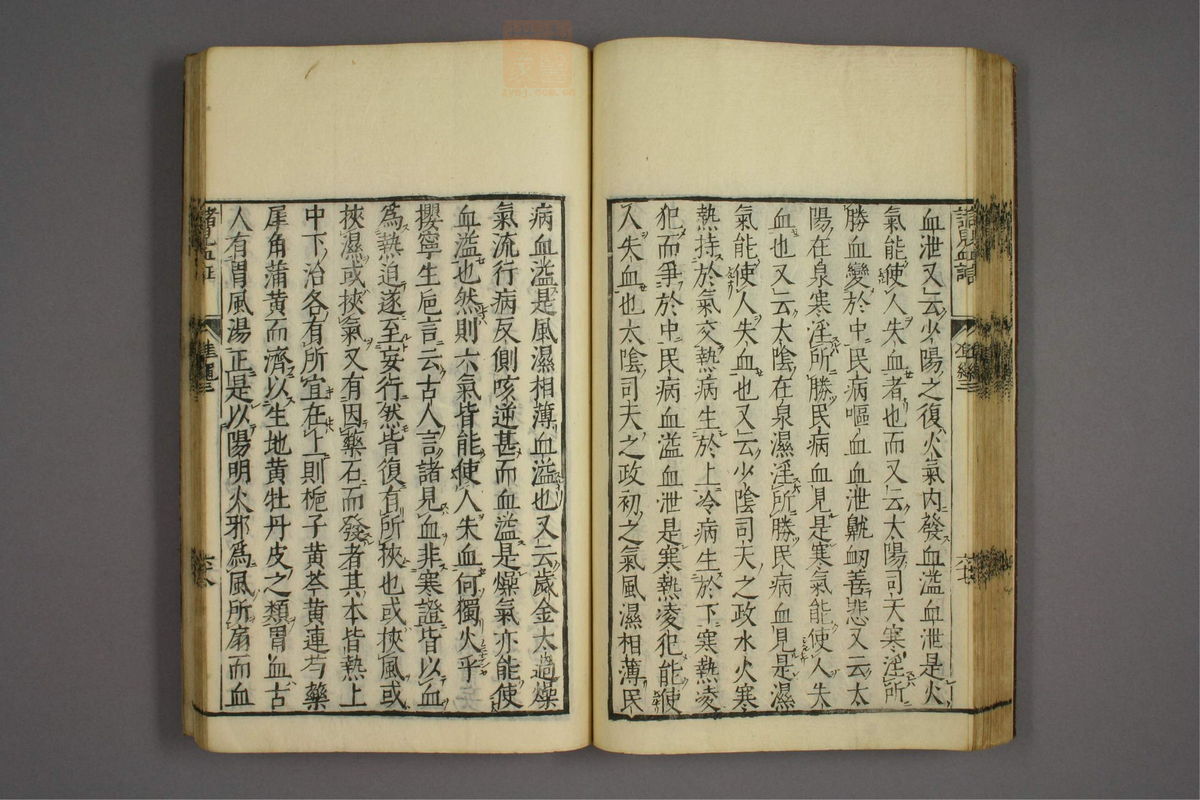 血泄又云少陽之復火氣內發血溢血泄是火
氣能使人失血者也而又云太陽司天寒淫所
勝血變於中民病嘔血血泄鼽衂善悲又云太
陽在泉寒淫所勝民病血見是寒氣能使人失
血也又云太陰在泉濕淫所勝民病血見是濕
氣能使人失血也又云少陰司天之政水火寒
熱持於氣交熱病生於上冷病生於下寒熱凌
犯而爭於中民病血溢血泄是寒熱凌犯能使
人失血也太陰司天之政初之氣風濕相薄民
病血溢是風濕相薄血溢也又云歲金太過燥
氣流行病反側咳逆甚而血溢是燥氣亦能使
血溢也然則六氣皆能使人失血何獨火乎
攖寧生巵言云古人言諸見血非寒證皆以血
為熱迫遂至妄行然皆復有所挾也或挾風或
挾濕或挾氣又有因藥石而發者其本皆熱上
中下治各有所宜在上則梔子黃芩黃連芍藥
犀角蒲黃而濟以生地黃牡丹皮之類胃血古
人有胃風湯正是以陽明火邪為風所扇而血